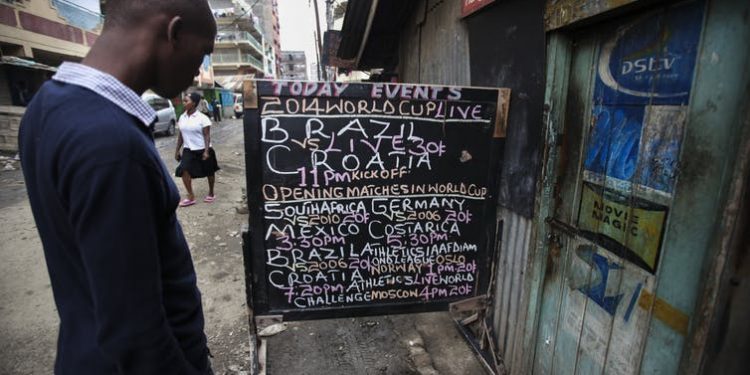 TODAY EVENTS
2014 WORLD CUP LIVE
BRAZIL
VS LIVE 30/-
CROATIA
11PM KICK OFF
OPENING MATCHES IN WORLD CUP
SOUTH AFRICA GERMANY
VS 2010 20/- VS 2006 20/-
MEXICO COSTARICA
3.30PM 5.30PM
BRAZIL ATHLETICS IAAF DIAM
VS 2006 20/- OND LEAGUE OSLO
CROATIA NORWAY 1PM 20/-
7.20PM ATHLETICS LIVE WORLD
CHALLENGE MOSCOW 4PM 20/-
DSTV
MOVIE
MAGIC